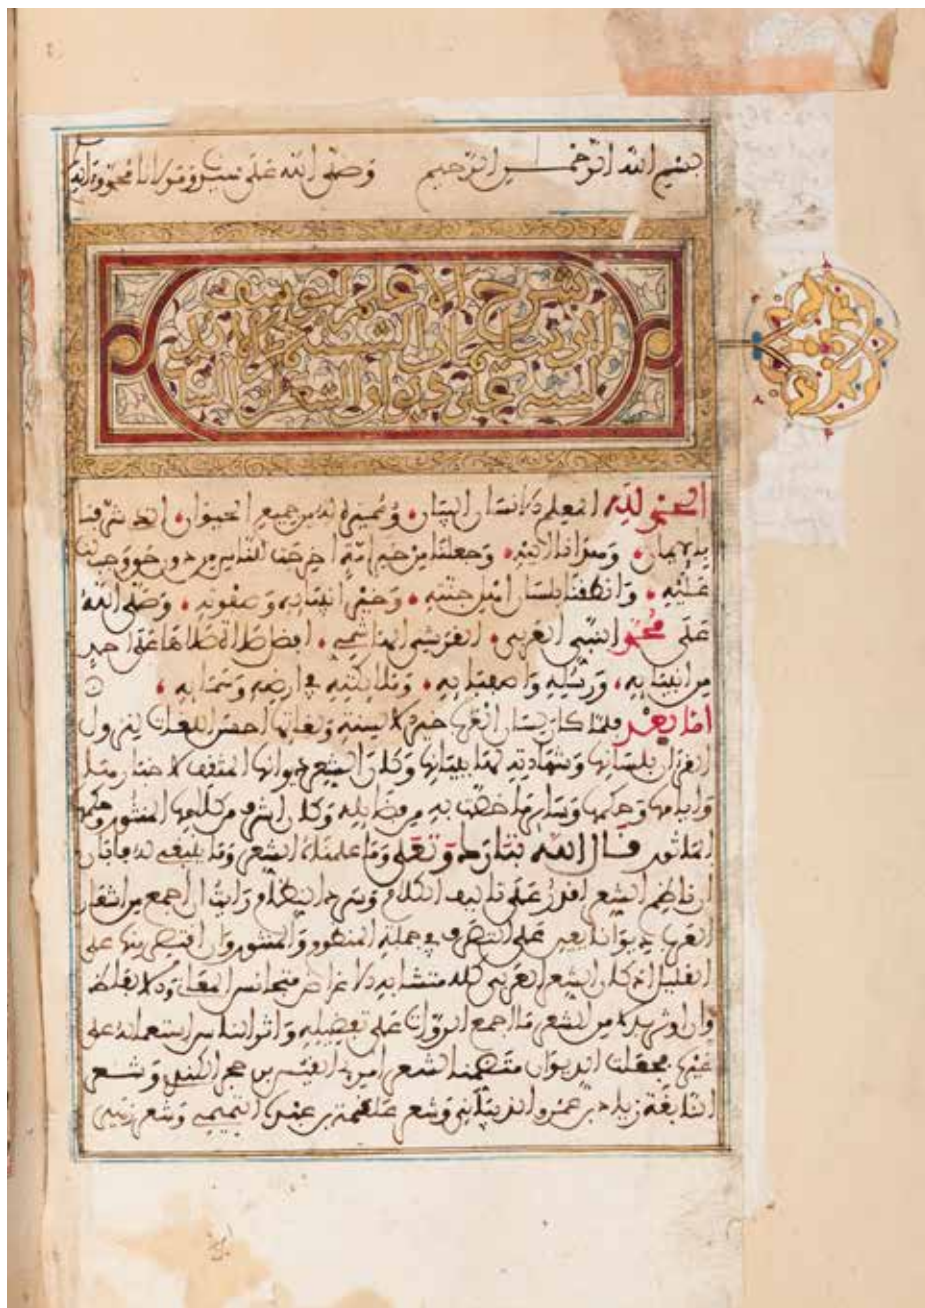 بسم الله الرحمن الرحيم وصلى الله على سيدنا ومولانا محمد وآله
شرح الأعلم ليوسف
ابن سليمان الشنتمري
الستة على ديوان الشعراء
الحمد لله المعلم الانسان البيان ومميزه له من جميع الحيوان الذي شرفنا
بالايمان وجعلنا من خير امة اخرجت للناس من
عليه وانطقنا بلسان اهل جنته وخير انبيائه وصفوته وصلى الله
على محمد النبي العربي القرشي الهاشمي افضل صلاة صلاها على احد
من انبيائه ورسله واصفيائه وملائكته في ارضه وسمائه
اما بعد فلما كان لسان العرب خير الالسنة ولغاتها احسن اللغات لنزول
القرءان بلسانها وشهادته لها ببيانها وكان الشعر ديوانها المثقف لاخبارها
وايامها وحكمها وسائر ما خصت به من فضايله وكان اشرف كلامها المنثور وحكمها
الماثور قال الله تبارك وتعلى وما علمناه الشعر وما ينبغي له فابان
ان ناظم الشعر اقدر على تاليف الكلام وسرد النظام رايت ان اجمع من اشعار
العرب ديوانا يعين على التصرف في جملة المنظوم والمنثور وان اقتصر منها على
القليل اذ كان شعر العرب كله متشابه الاغراض متجانس المعاني والالفاظ
وان اوثر بذلك من الشعر ما اجمع الرواة على تفضيله واثر الناس استعماله على
غيره فجعلت الديوان متضمنا لشعر امرئ القيس بن حجر الكندي وشعر
النابغة زياد بن عمرو الذبياني وشعر علقمة بن عبدة التميمي وشعر زهير